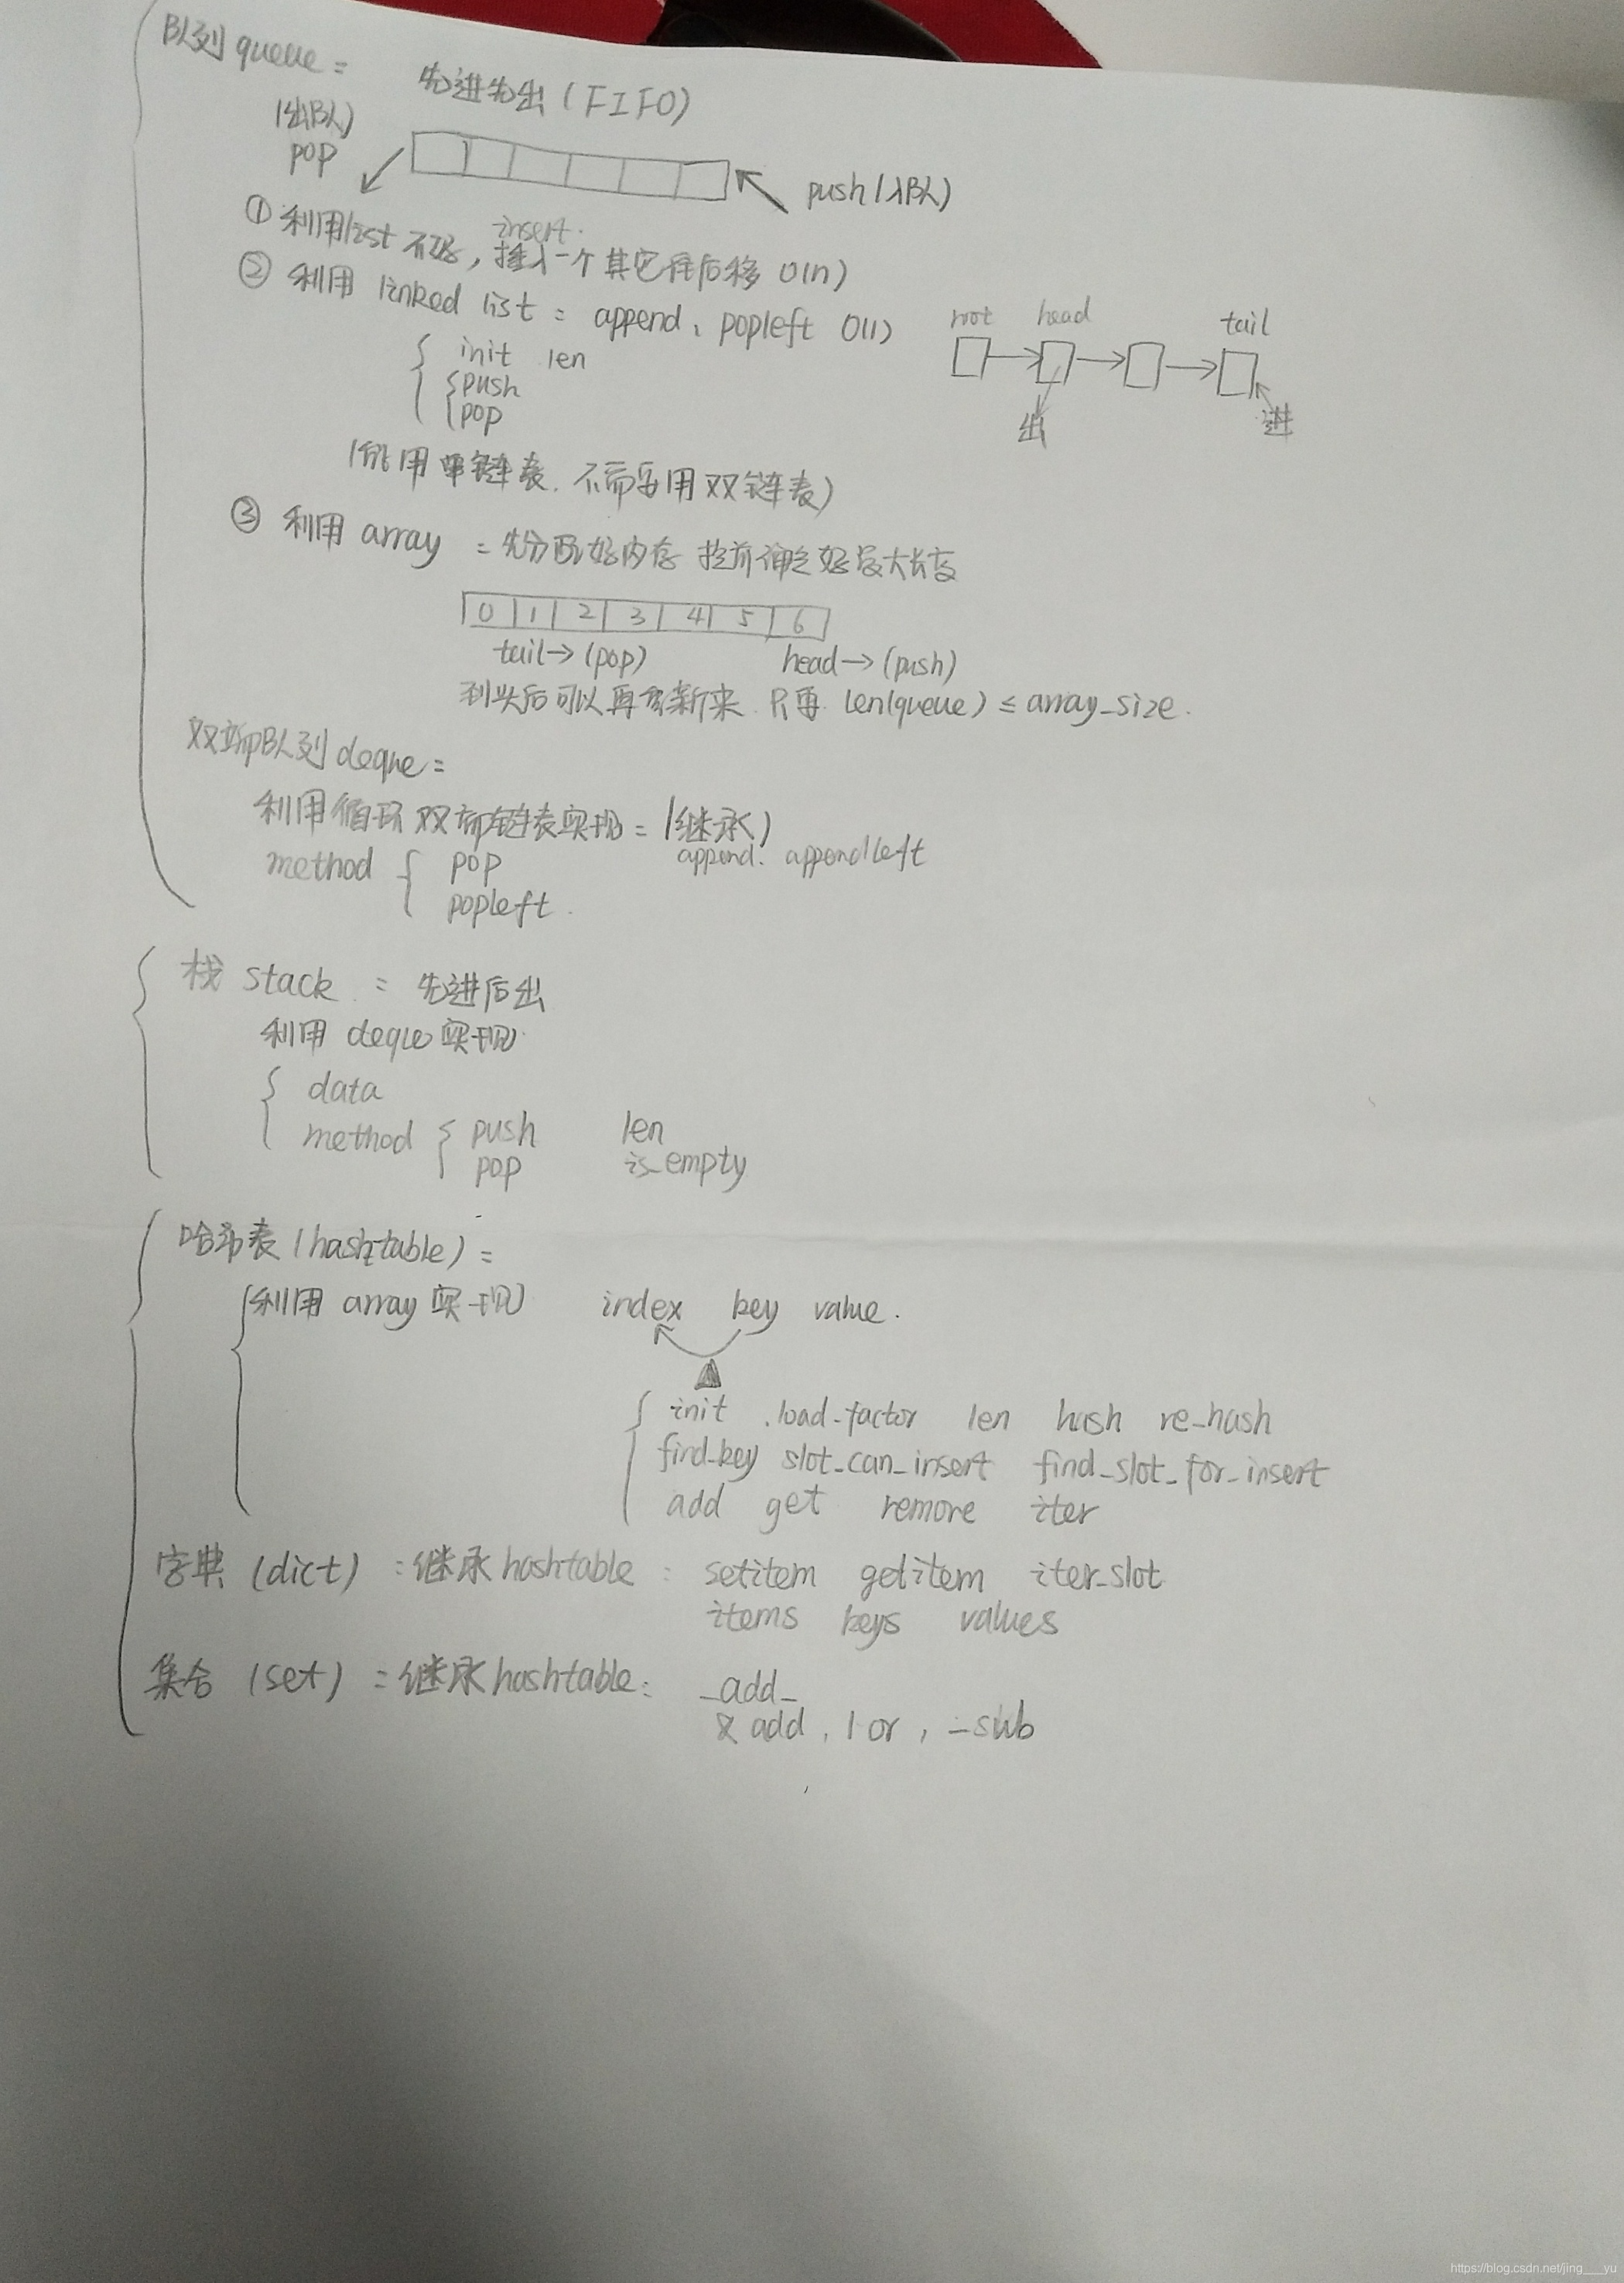 队列 queue:
先进先出 (FIFO)
(出队)
pop
push (入队)
① 利用list 不好, insert. 插入一个其它往后移 O(n)
② 利用 linked list: append、popleft O(1)
root head tail
init len
push
pop
出 进
(用单链表. 不需要用双链表)
③ 利用 array : 先分配好内存 提前确定好最大长度
0 1 2 3 4 5 6
tail→(pop) head→(push)
到头后可以再重新来 只要 len(queue) ≤ array_size.
双端队列 deque:
利用循环双端链表实现: (继承)
append. appendleft
method pop
popleft.
栈 stack : 先进后出
利用 deque 实现
data
method push len
pop is_empty
哈希表 (hashtable) :
利用 array 实现 index key value.
init .load_factor len hash re_hash
find_key slot_can_insert find_slot_for_insert
add get remove iter
字典 (dict) : 继承 hashtable : setitem getitem iter_slot
items keys values
集合 (set) : 继承 hashtable: _add_
& add , | or , -sub
https://blog.csdn.net/jing___yu